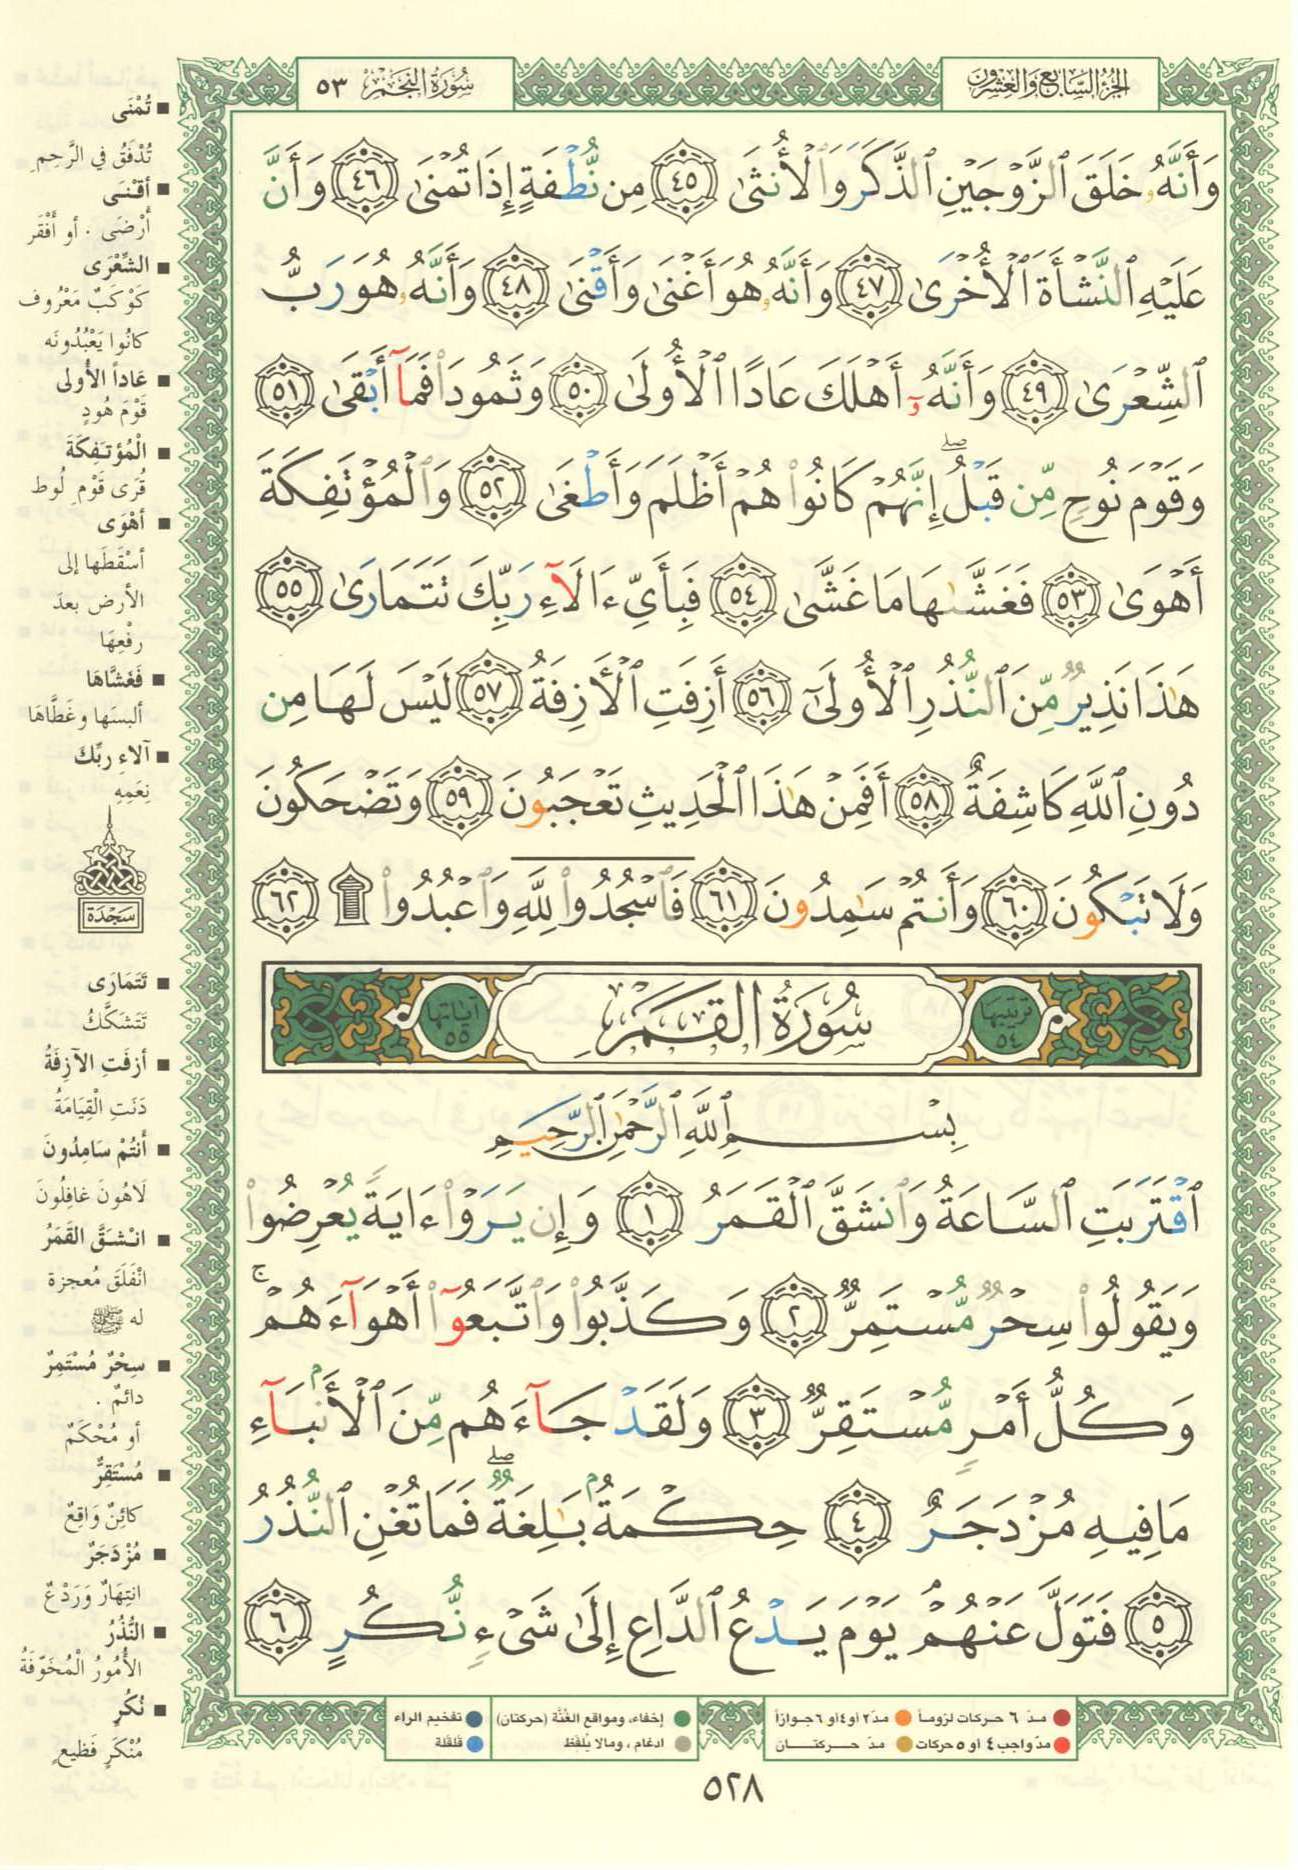 سُورَةُ النَّجْمِ ٥٣
الجُزءُ السَّابِعُ وَالعِشرُون
وَأَنَّهُۥ خَلَقَ ٱلزَّوْجَيْنِ ٱلذَّكَرَ وَٱلْأُنثَىٰ ٤٥ مِن نُّطْفَةٍ إِذَا تُمْنَىٰ ٤٦ وَأَنَّ
عَلَيْهِ ٱلنَّشْأَةَ ٱلْأُخْرَىٰ ٤٧ وَأَنَّهُۥ هُوَ أَغْنَىٰ وَأَقْنَىٰ ٤٨ وَأَنَّهُۥ هُوَ رَبُّ
ٱلشِّعْرَىٰ ٤٩ وَأَنَّهُۥٓ أَهْلَكَ عَادًا ٱلْأُولَىٰ ٥٠ وَثَمُودَا۟ فَمَآ أَبْقَىٰ ٥١
وَقَوْمَ نُوحٍ مِّن قَبْلُ ۖ إِنَّهُمْ كَانُوا۟ هُمْ أَظْلَمَ وَأَطْغَىٰ ٥٢ وَٱلْمُؤْتَفِكَةَ
أَهْوَىٰ ٥٣ فَغَشَّىٰهَا مَا غَشَّىٰ ٥٤ فَبِأَىِّ ءَالَآءِ رَبِّكَ تَتَمَارَىٰ ٥٥
هَٰذَا نَذِيرٌ مِّنَ ٱلنُّذُرِ ٱلْأُولَىٰٓ ٥٦ أَزِفَتِ ٱلْـَٔازِفَةُ ٥٧ لَيْسَ لَهَا مِن
دُونِ ٱللَّهِ كَاشِفَةٌ ٥٨ أَفَمِنْ هَٰذَا ٱلْحَدِيثِ تَعْجَبُونَ ٥٩ وَتَضْحَكُونَ
وَلَا تَبْكُونَ ٦٠ وَأَنتُمْ سَٰمِدُونَ ٦١ فَٱسْجُدُوا۟ لِلَّهِ وَٱعْبُدُوا۟ ۩ ٦٢
ترتيبها ٥٤
سُورَةُ القَمَرِ
آياتها ٥٥
بِسْمِ ٱللَّهِ ٱلرَّحْمَٰنِ ٱلرَّحِيمِ
ٱقْتَرَبَتِ ٱلسَّاعَةُ وَٱنشَقَّ ٱلْقَمَرُ ١ وَإِن يَرَوْا۟ ءَايَةً يُعْرِضُوا۟
وَيَقُولُوا۟ سِحْرٌ مُّسْتَمِرٌّ ٢ وَكَذَّبُوا۟ وَٱتَّبَعُوٓا۟ أَهْوَآءَهُمْ ۚ
وَكُلُّ أَمْرٍ مُّسْتَقِرٌّ ٣ وَلَقَدْ جَآءَهُم مِّنَ ٱلْأَنۢبَآءِ
مَا فِيهِ مُزْدَجَرٌ ٤ حِكْمَةٌۢ بَٰلِغَةٌ ۖ فَمَا تُغْنِ ٱلنُّذُرُ
٥ فَتَوَلَّ عَنْهُمْ ۘ يَوْمَ يَدْعُ ٱلدَّاعِ إِلَىٰ شَىْءٍ نُّكُرٍ ٦
■ تُمْنَى
تُدْفَقُ في الرَّحِمِ
■ أَقْنَى
أَرْضَى . أو أَفْقَر
■ الشِّعْرَى
كَوْكَبٌ مَعْرُوف
كانُوا يَعْبُدُونَه
■ عَاداً الأُولى
قَوْمَ هُودٍ
■ الْمُؤْتَفِكَةَ
قُرَى قَوْمِ لُوط
■ أَهْوَى
أسْقَطَها إلى
الأرض بعدَ
رفْعِهَا
■ فَغَشَّاهَا
ألبسَها وغَطَّاهَا
■ آلاءِ ربِّكَ
نِعَمِهِ
سَجْدَة
■ تَتَمَارَى
تَتَشَكَّكُ
■ أزِفَتِ الآزِفَةُ
دَنَتِ الْقِيَامَةُ
■ أَنتُمْ سَامِدُونَ
لَاهُونَ غَافِلُونَ
■ انْشَقَّ القَمَرُ
انْفَلَقَ مُعجزة
له ﷺ
■ سِحْرٌ مُسْتَمِرٌ
دائمٌ .
أو مُحْكَمٌ
■ مُسْتَقِرٌّ
كائِنٌ وَاقِعٌ
■ مُزْدَجَرٌ
انتِهَارٌ وَرَدْعٌ
■ النُّذُرُ
الأُمُورُ الْمُخَوِّفَةُ
■ نُكُرٍ
مُنْكَرٍ فَظيعٍ
مدّ ٦ حركات لزوماً
مدّ ٢ أو ٤ أو ٦ جوازاً
إخفاء، ومواقع الغُنَّة (حركتان)
تفخيم الراء
مدّ واجب ٤ أو ٥ حركات
مدّ حركتان
ادغام ، ومالا يُلفَظ
قلقلة
٥٢٨